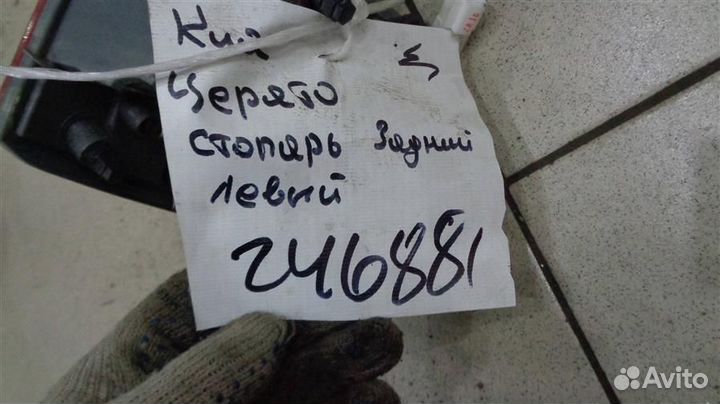 Киа
Церато
стопарь задний
левый
246881
Avito